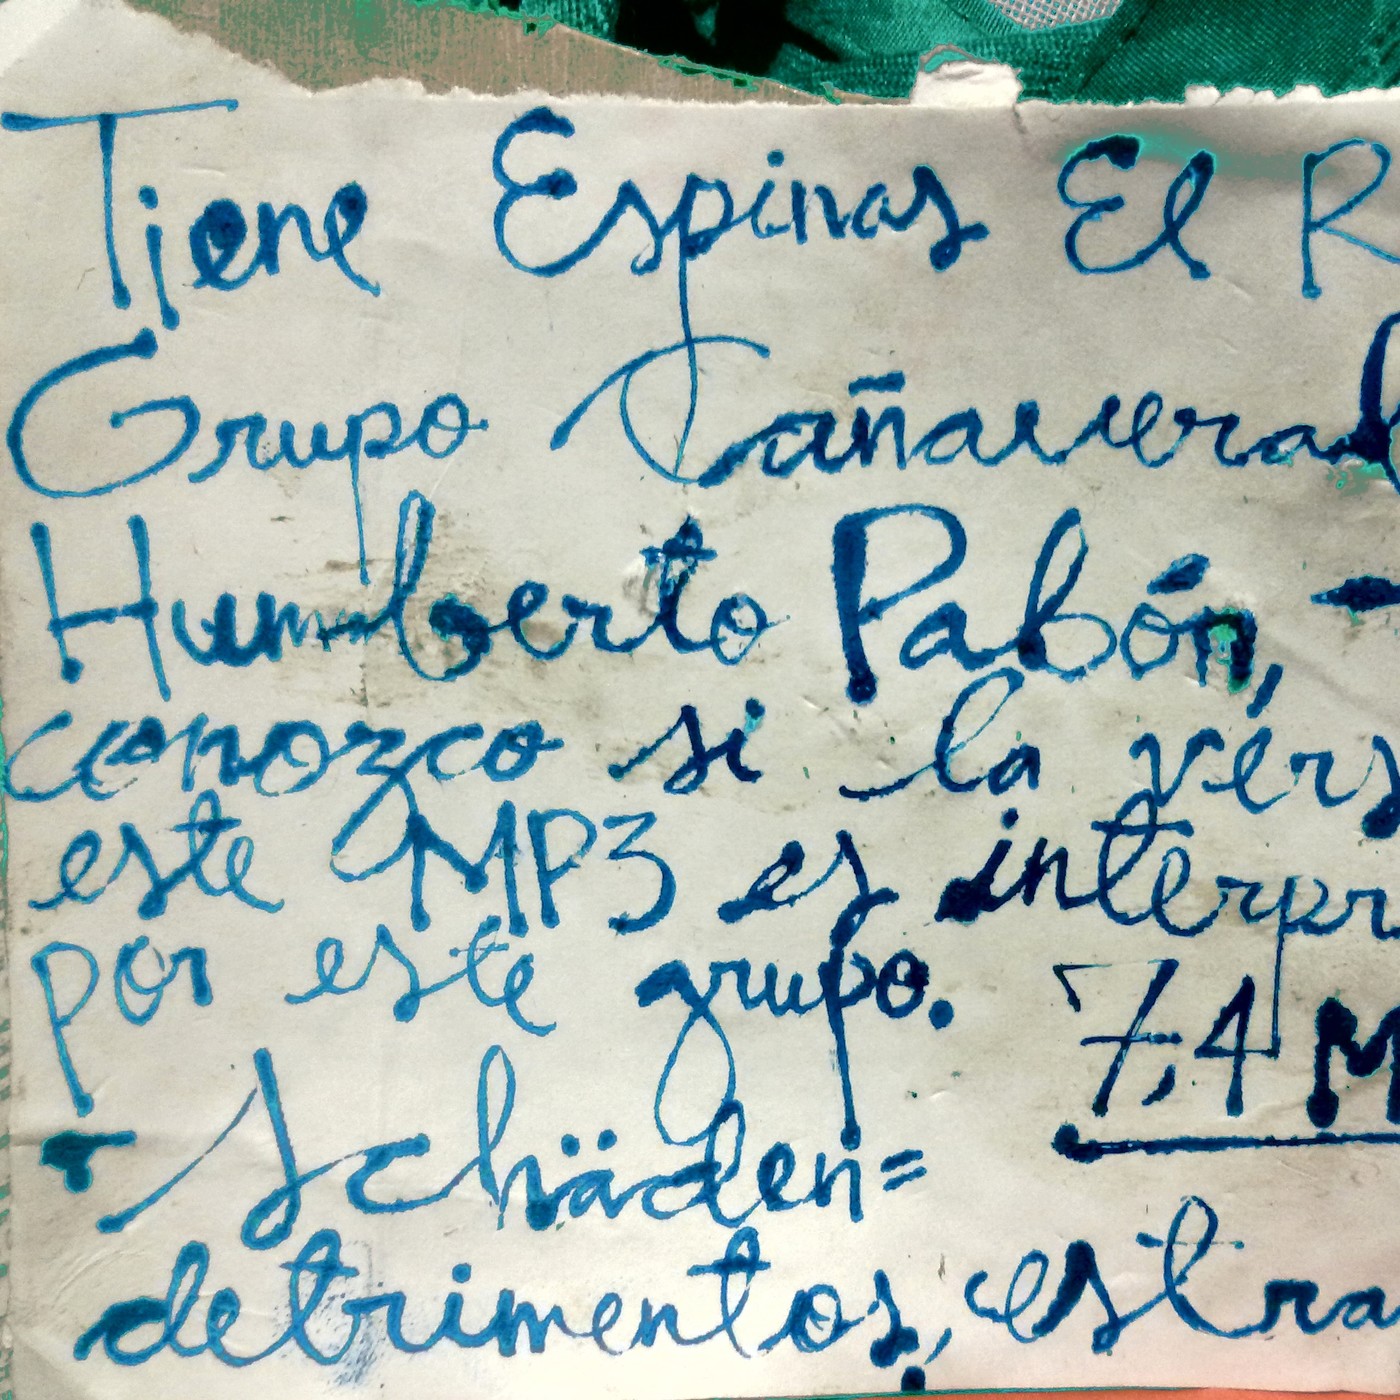 Tiene Espinas El R
Grupo Cañaveral
Humberto Pabón, -
conozco si la vers
este MP3 es interpr
por este grupo. 7,4 M
- Schäden=
detrimentos, estra